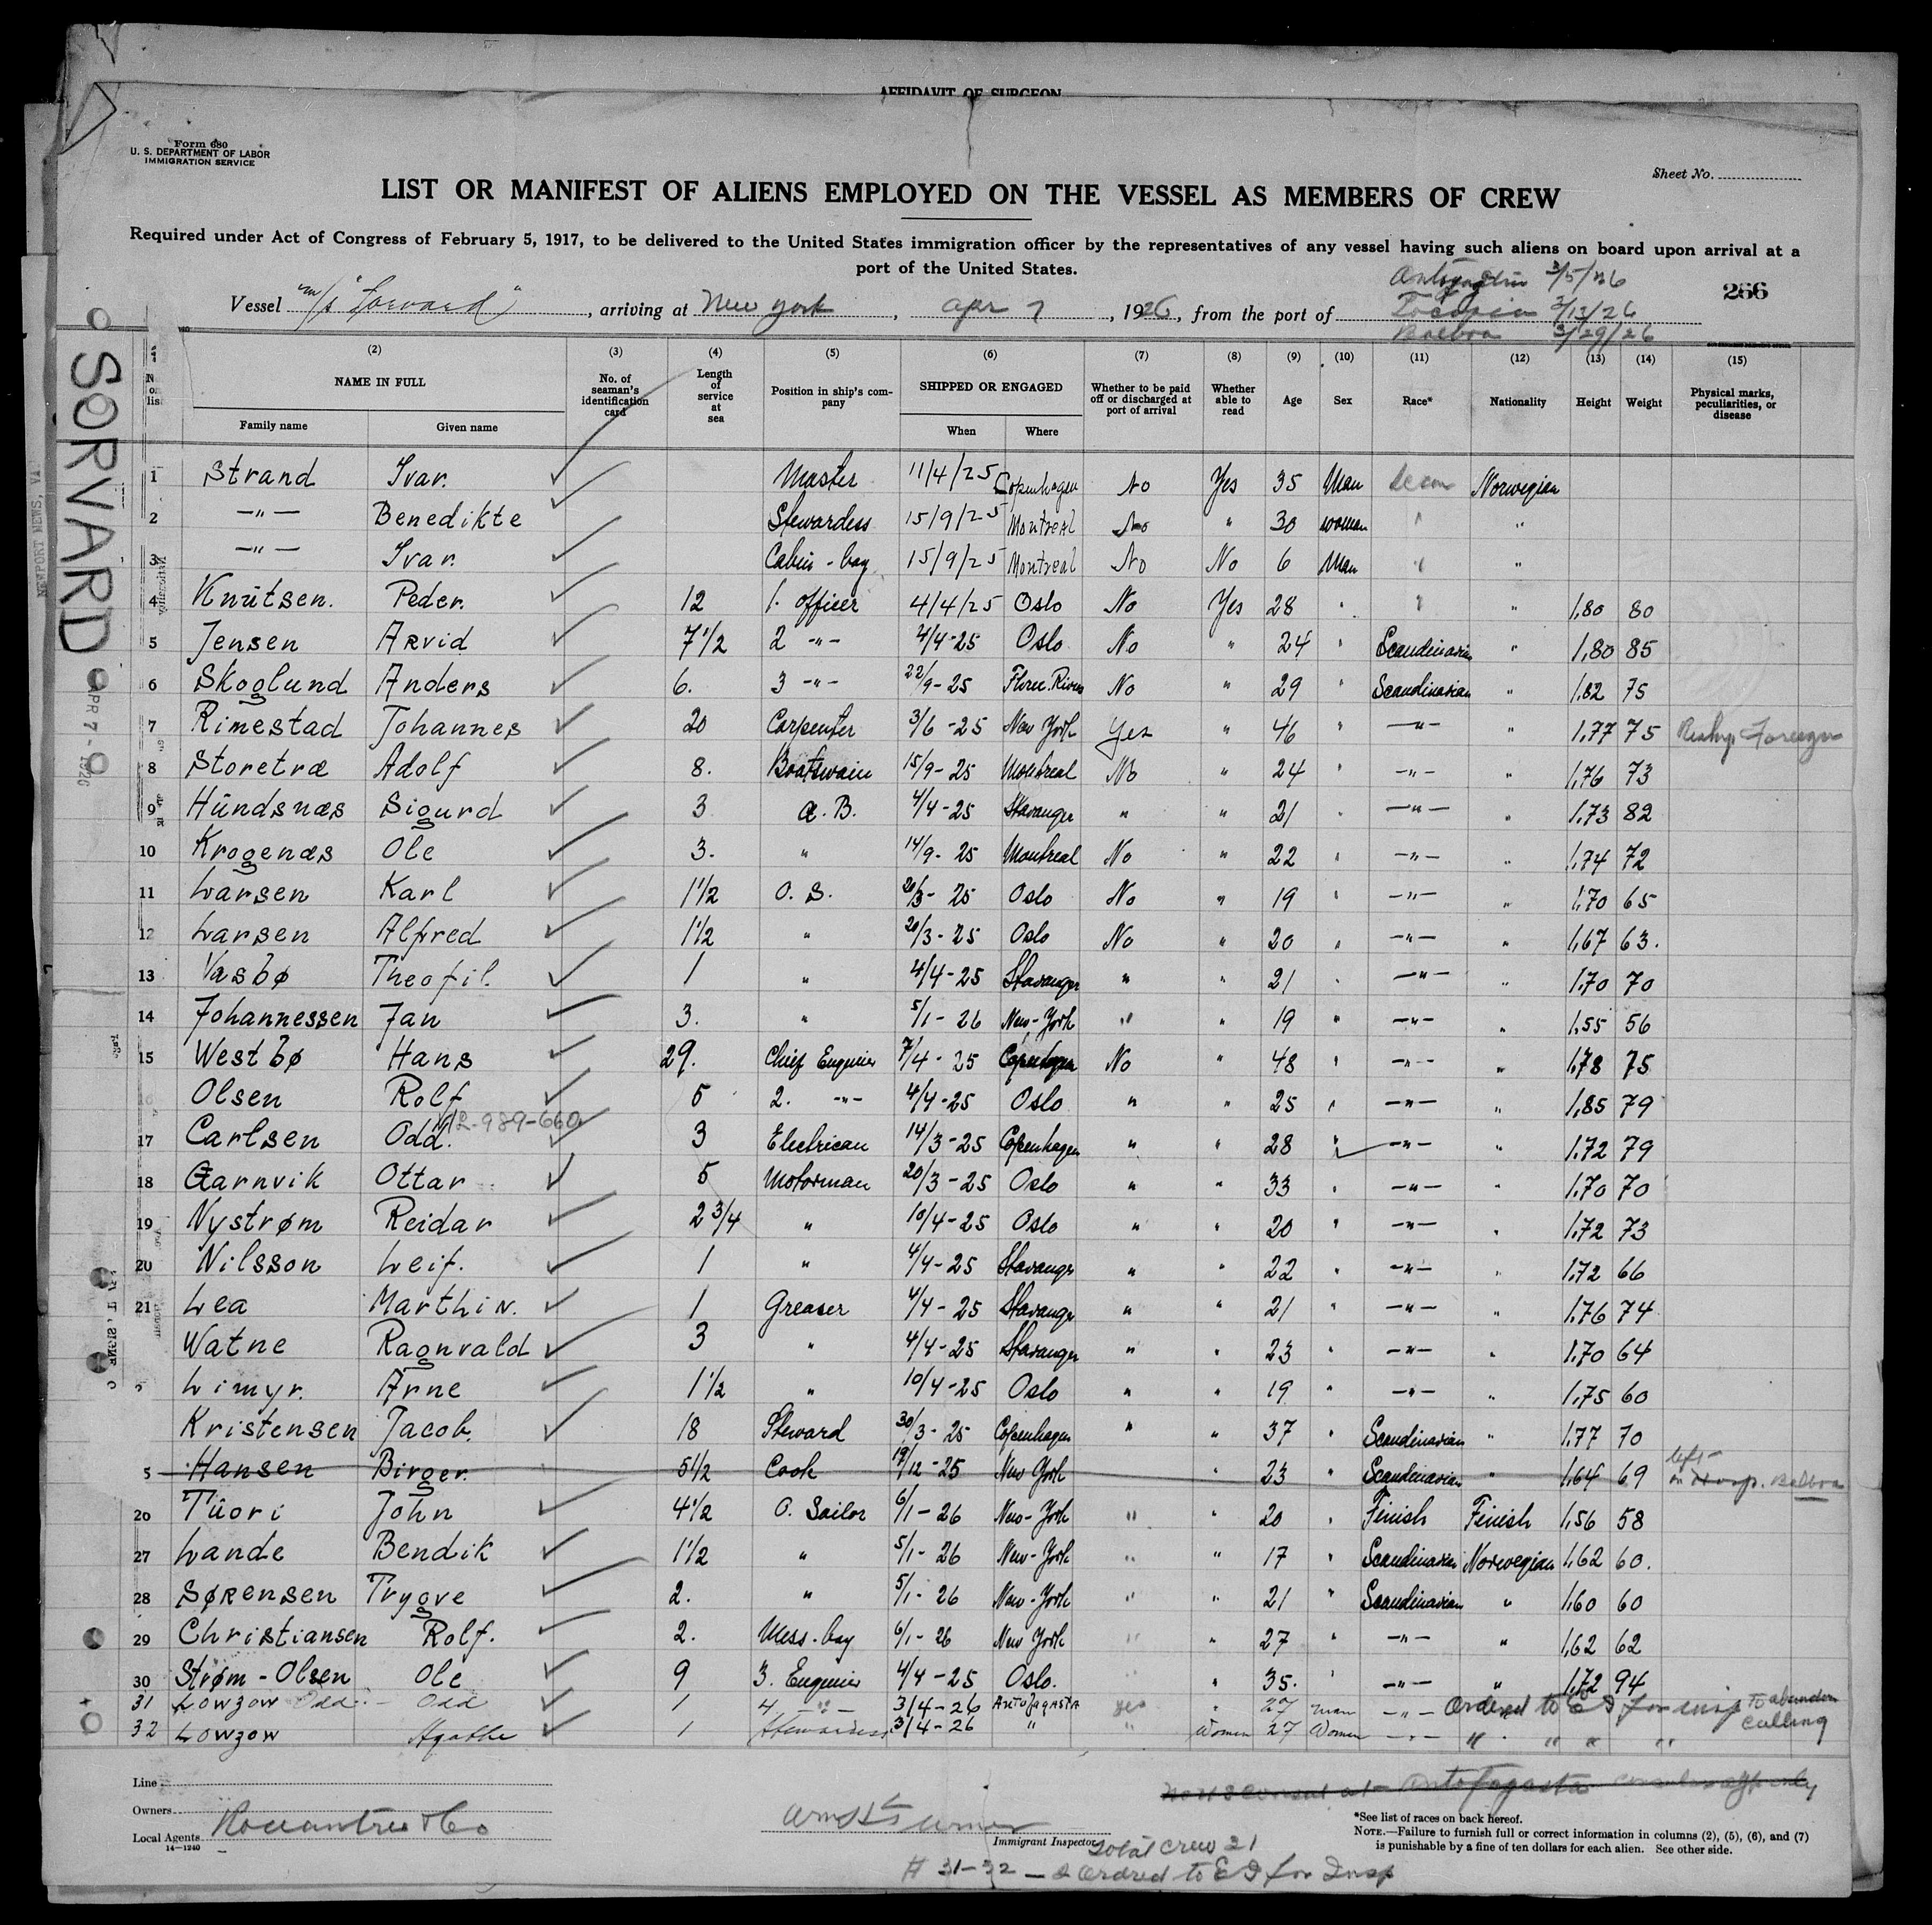 AFFIDAVIT OF SURGEON
Form 680
U. S. DEPARTMENT OF LABOR
IMMIGRATION SERVICE
Sheet No.
LIST OR MANIFEST OF ALIENS EMPLOYED ON THE VESSEL AS MEMBERS OF CREW
Required under Act of Congress of February 5, 1917, to be delivered to the United States immigration officer by the representatives of any vessel having such aliens on board upon arrival at a
port of the United States.
3/5/26
266
Vessel m/s , arriving at New York, Apr 7, 1926, from the port of 3/13/26
Balboa 3/29/26
SORVARD
NEWPORT NEWS, VA.
APR 7 - 1926
(2) (3) (4) (5) (6) (7) (8) (9) (10) (11) (12) (13) (14) (15)
No. on list NAME IN FULL Family name Given name No. of seaman's identification card Length of service at sea Position in ship's company SHIPPED OR ENGAGED When Where Whether to be paid off or discharged at port of arrival Whether able to read Age Sex Race* Nationality Height Weight Physical marks, peculiarities, or disease
1 Strand Ivar. Master 11/4/25 Copenhagen No Yes 35 Man Norwegian
2 —"— Benedikte Stewardess 15/9/25 Montreal No " 30 woman " "
3 —"— Ivar. Cabin-boy 15/9/25 Montreal No No 6 Man " "
4 Knutsen. Peder. 12 1. officer 4/4/25 Oslo No Yes 28 " " " 1,80 80
5 Jensen Arvid 7 1/2 2 —"— 4/4-25 Oslo No " 24 " Scandinavian " 1,80 85
6 Skoglund Anders 6. 3 —"— 22/9-25 Three Rivers No " 29 " Scandinavian " 1,82 75
7 Rimestad Johannes 20 Carpenter 3/6-25 New York Yes " 46 " —"— " 1,77 75 Reshp. Foreign
8 Storetræ Adolf 8. Boatswain 15/9-25 Montreal No " 24 " —"— " 1,76 73
9 Hundsnæs Sigurd 3 A.B. 4/4-25 Stavanger " " 21 " —"— " 1,73 82
10 Krogenæs Ole 3. " 14/9-25 Montreal No " 22 " —"— " 1,74 72
11 Larsen Karl 1 1/2 O.S. 20/3-25 Oslo No " 19 " —"— " 1,70 65
12 Larsen Alfred 1 1/2 " 20/3-25 Oslo No " 20 " —"— " 1,67 63.
13 Vasbø Theofil. 1 " 4/4-25 Stavanger " " 21 " —"— " 1,70 70
14 Johannessen Jan 3. " 5/1-26 New-York " " 19 " —"— " 1,55 56
15 Westbø Hans 29. Chief Engineer 7/4-25 Copenhagen No " 48 " —"— " 1,78 75
Olsen Rolf 5 2. —"— 4/4-25 Oslo " " 25 " —"— " 1,85 79
2-989-660
17 Carlsen Odd. 3 Electrican 14/3-25 Copenhagen " " 28 " —"— " 1,72 79
18 Garnvik Ottar 5 Motorman 20/3-25 Oslo " " 33 " —"— " 1,70 70
19 Nystrøm Reidar 2 3/4 " 10/4-25 Oslo " " 20 " —"— " 1,72 73
20 Nilsson Leif. 1 " 4/4-25 Stavanger " " 22 " —"— " 1,72 66
21 Lea Marthin. 1 Greaser 4/4-25 Stavanger " " 21 " —"— " 1,76 74
Watne Ragnvald 3 " 4/4-25 Stavanger " " 23 " —"— " 1,70 64
Limyr. Arne 1 1/2 " 10/4-25 Oslo " " 19 " —"— " 1,75 60
Kristensen Jacob. 18 Steward 30/3-25 Copenhagen " " 37 " Scandinavian " 1,77 70
5 Hansen Birger. 5 1/2 Cook 19/12-25 New York " 23 " Scandinavian " 1,64 69 left in Hosp. Balboa
26 Tuori John 4 1/2 O. Sailor 6/1-26 New-York " " 20 " Finish Finish 1,56 58
27 Lande Bendik 1 1/2 " 5/1-26 New-York " " 17 " Scandinavian Norwegian 1,62 60.
28 Sørensen Trygve 2. " 5/1-26 New-York " " 21 " Scandinavian " 1,60 60
29 Christiansen Rolf. 2. Mess-boy 6/1-26 New York " " 27 " —"— " 1,62 62
30 Strøm-Olsen Ole 9 3. Engineer 4/4-25 Oslo. " " 35. " —"— " 1,72 94
31 Lowzow Odd - Odd 1 4 —"— 3/4-26 Antofagasta yes " 27 man —"— Ordered to EI for insp
32 Lowzow Agathe 1 Stewardess 3/4-26 " " Women 27 Women —"— " " " "
Line
Owners
Local Agents Rountree & Co
14—1240
Immigrant Inspector.
No US Consul at Antofagasta
*See list of races on back hereof.
NOTE.—Failure to furnish full or correct information in columns (2), (5), (6), and (7)
is punishable by a fine of ten dollars for each alien. See other side.
Total crew 21
# 31-32 — 2 Ordred to EI for Insp